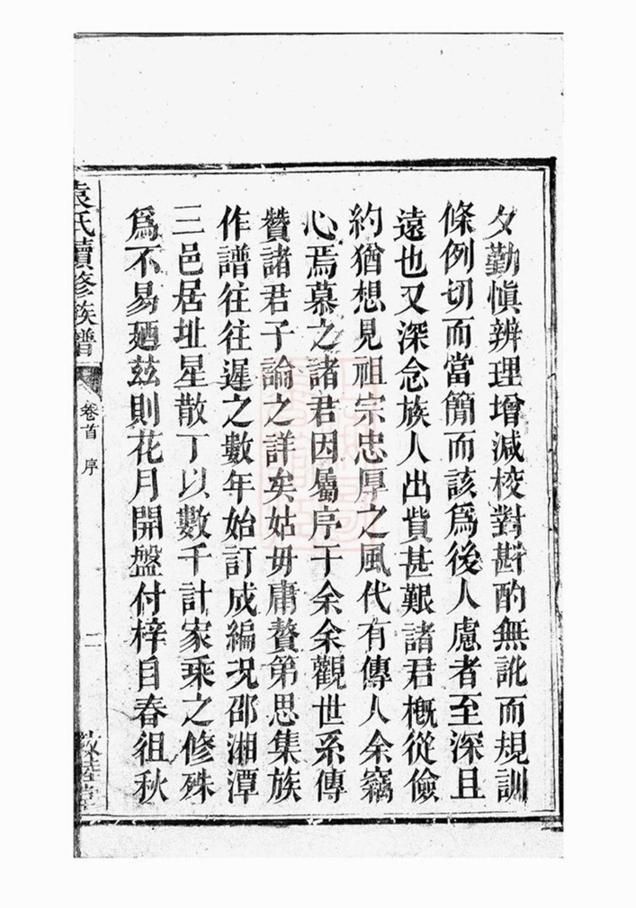 夕勤慎辨理增減校對斟酌無訛而規訓
條例切而當簡而該爲後人慮者至深且
遠也又深念族人出貲甚艱諸君槪從儉
約猶想見祖宗忠厚之風代有傳人余竊
心焉慕之諸君因屬序于余余觀世系傳
贊諸君子論之詳矣姑毋庸贅第思集族
作譜往往遲之數年始訂成編况邵湘潭
三邑居址星散丁以數千計家乘之修殊
爲不易廼兹則花月開盤付梓自春徂秋
袁氏續修族譜
卷首 序
二